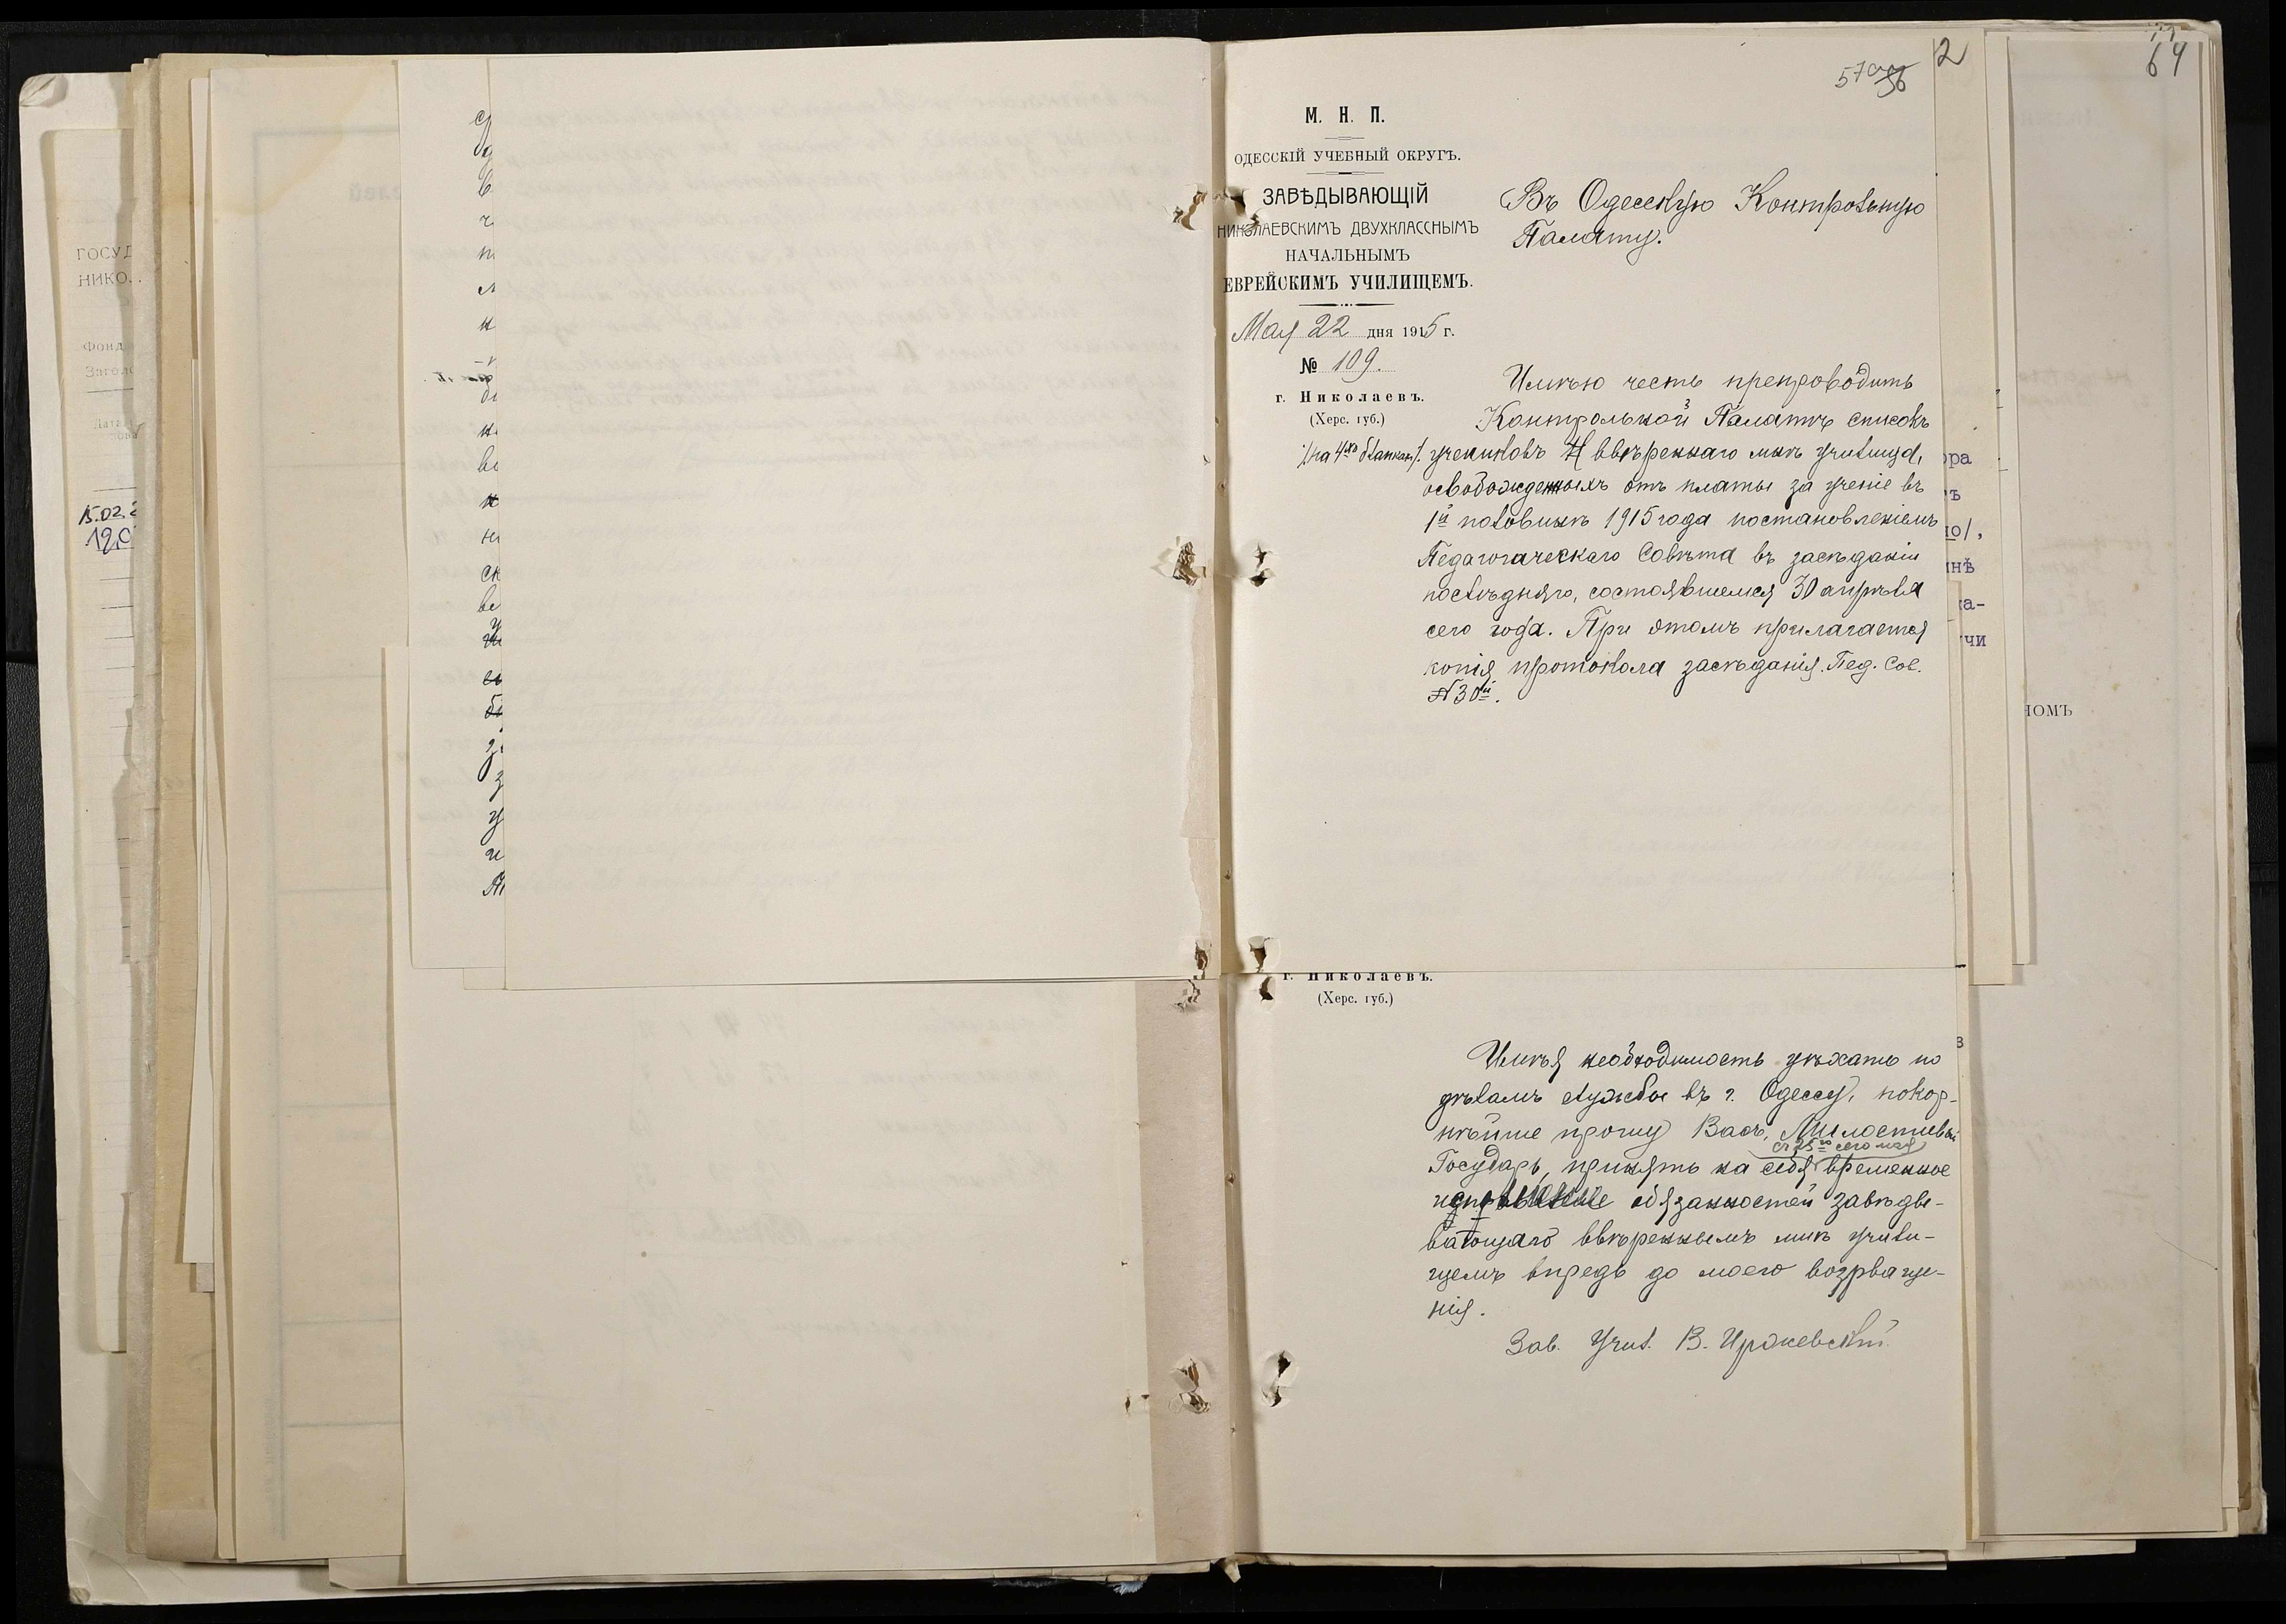 64
57
2
М. Н. П.
ОДЕССКІЙ УЧЕБНЫЙ ОКРУГЪ.
ЗАВѢДЫВАЮЩІЙ
НИКОЛАЕВСКИМЪ ДВУХКЛАССНЫМЪ
НАЧАЛЬНЫМЪ
ЕВРЕЙСКИМЪ УЧИЛИЩЕМЪ.
Мая 22 дня 1915 г.
№ 109.
г. Николаевъ.
(Херс. губ.)
Въ Одесскую Контрольную
Палату.
Имѣю честь препроводить
Контрольной Палатѣ списокъ
/на 4хъ бланкахъ/. учениковъ ввѣреннаго мнѣ училища,
освобожденныхъ отъ платы за ученіе въ
1й половинѣ 1915 года постановленіемъ
Педагогическаго Совѣта въ засѣданіи
послѣдняго, состоявшемся 30 апрѣля
сего года. При этомъ прилагается
копія протокола засѣданія Пед. Сов.
г. Николаевъ.
(Херс. губ.)
Имѣя необходимость уѣхать по
дѣламъ службы въ г. Одессу, покор-
нѣйше прошу Васъ, Милостивый
съ 25го сего мая
Государь, принять на себя временное
исполненіе обязанностей завѣды-
вающаго ввѣреннымъ мнѣ учили-
щемъ впредь до моего возвраще-
нія.
Зав. Учил. В. Иржевскій.
ГОСУД
НИКО
Фонд
15.02.2
ора
ъ
но/,
нѣ
ка-
чи
НОМЪ